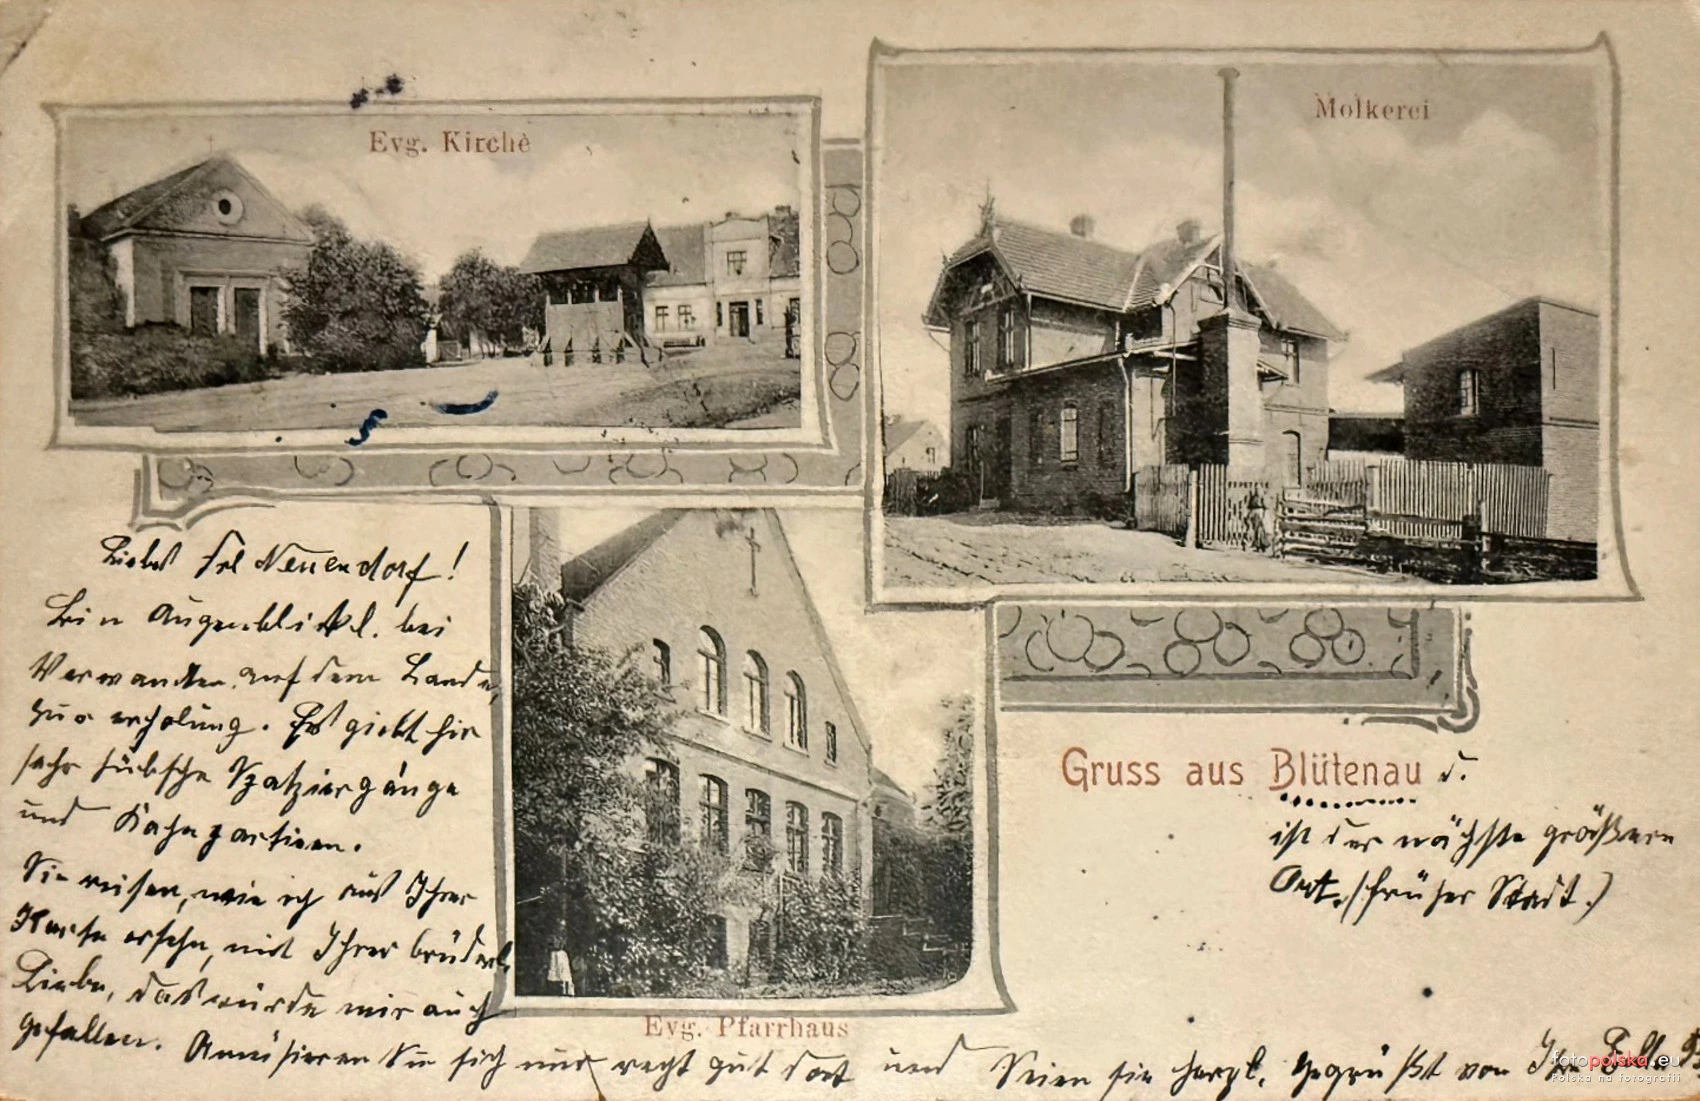 Evg. Kirche
Molkerei
Liebes Frl Neuendorf!
Bin Augenblickl. bei
Verwandten auf dem Lande,
zur erholung. Es giebt hir
sehr hübsche Spatziergänge
und Kahnpartieen.
Sie reisen, wie ich aus Ihrer
Karte ersehe, mit Ihrer brüderl.
Liebe, das würde mir auch
gefallen. Amüsieren Sie sich nur recht gut dort und Seien sie herzl. gegrüßt von Ihre
Evg. Pfarrhaus
Gruss aus Blütenau d.
ist der nächste größere
Ort. (früher Stadt.)
fotopolska.eu
Polska na fotografii